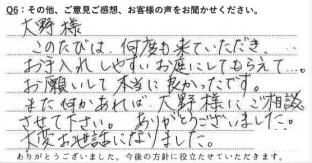 Q6：その他、ご意見ご感想、お客様の声をお聞かせください。
大野様
このたびは、何度も来ていただき、
お手入れしやすいお庭にしてもらえて…。
お願いして本当に良かったです。
また何かあれば大野様にご相談
させて下さい。ありがとうございました。
大変お世話になりました。
ありがとうございました。今後の方針に役立たせていただきます。